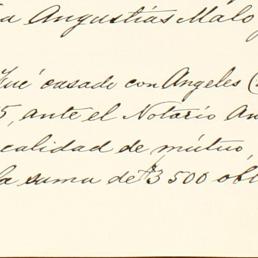 a Angustias Malo y
Fué casado con Angeles (
5, ante el Notario An
calidad de mútuo,
la suma de $3 500 obl